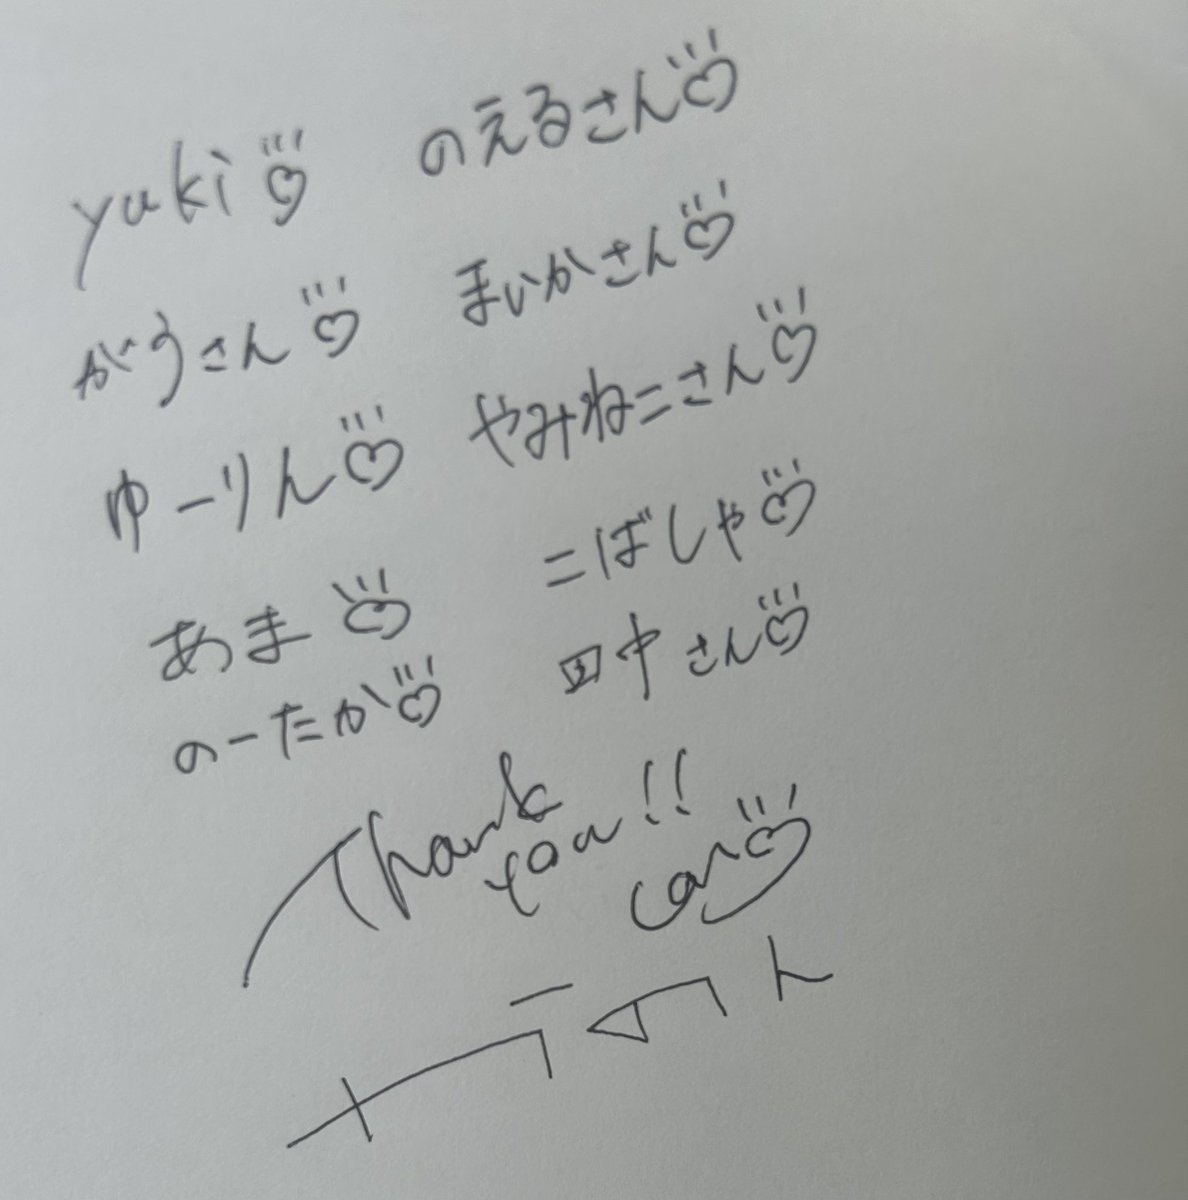 yuki♡ のえるさん♡
がうさん♡ まいかさん♡
ゆーりん♡ やみねこさん♡
あま♡ こばしゃ♡
のーたか♡ 田中さん♡
Thank
you!!